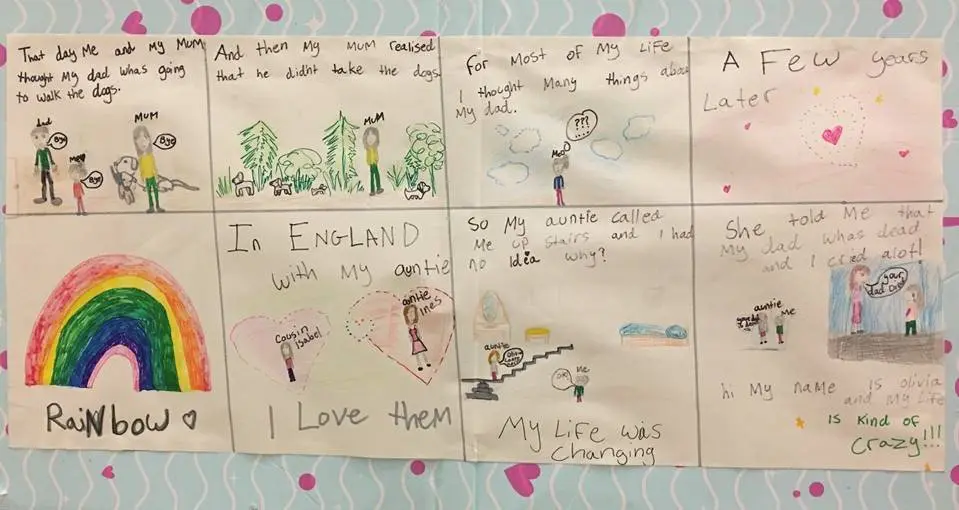 That day Me and My Mum
thought My dad whas going
to walk the dogs.
dad
Bye
Me
Bye
MUM
Bye
And then My MUM realised
that he didnt take the dogs
MUM
For Most of My Life
I thought Many things about
My dad.
???
Me
A Few years
Later
Rainbow
In ENGLAND
with My auntie
Cousin
isabel
auntie
ines
I Love them
So My auntie called
Me up stairs and I had
no idea why?
auntie
OK!
Me
My Life was
Changing
She told Me that
My dad whas dead
and I cried alot!
auntie
Me
your
dad Died
hi My name is olivia
and My Life
is kind of
Crazy!!!